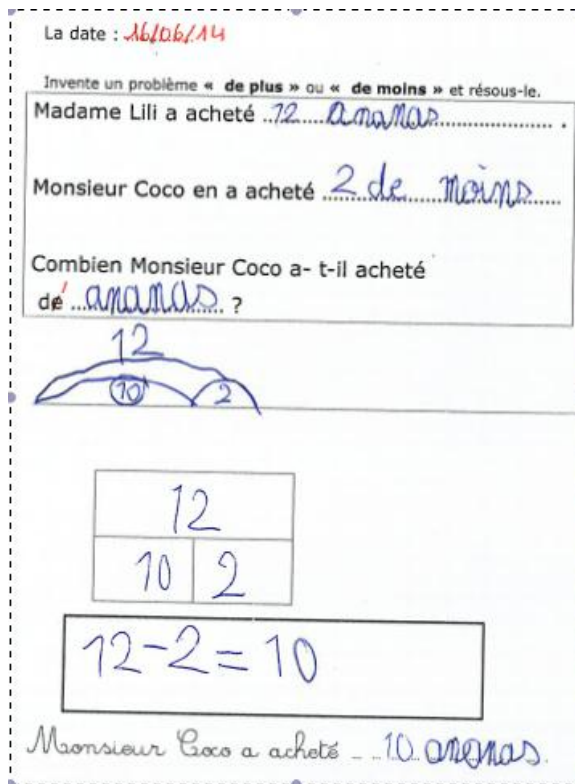 La date : 16/06/14
Invente un problème « de plus » ou « de moins » et résous-le.
Madame Lili a acheté ..12.....ananas..................... .
Monsieur Coco en a acheté ..2 de....moins.....
Combien Monsieur Coco a- t-il acheté
d' ...ananas.... ?
12
10 2
12
10 2
12-2=10
Monsieur Coco a acheté _ ..10 ananas.